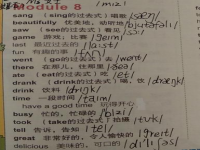 /mɪz/
Module 8
sang (sing的过去式) 唱歌 /sæŋ/
beautifully 优美地，动听地 /bjutəfəlɪ/
saw (see的过去式) 看见 /sɔ/
game 游戏；比赛 /geɪm/
last 最近过去的 /lɑst/
fun 有趣的事 /fʌn/
went (go的过去式) 去 /went/
there 在那儿，往那里 /ðeə/
ate (eat的过去式) 吃 /et/
drank (drink的过去式) 喝，饮 /dræŋk/
drink 饮料 /drɪŋk/
time 一段时间 /taɪm/
have a good time 玩得开心
busy 忙的，忙碌的 /bɪzɪ/
took (take的过去式) 拍摄 /tʊk/
tell 告诉，告知 /tel/
great 非常好的，令人愉快的 /greɪt/
delicious 美味的，可口的 /dɪ'lɪʃəs/